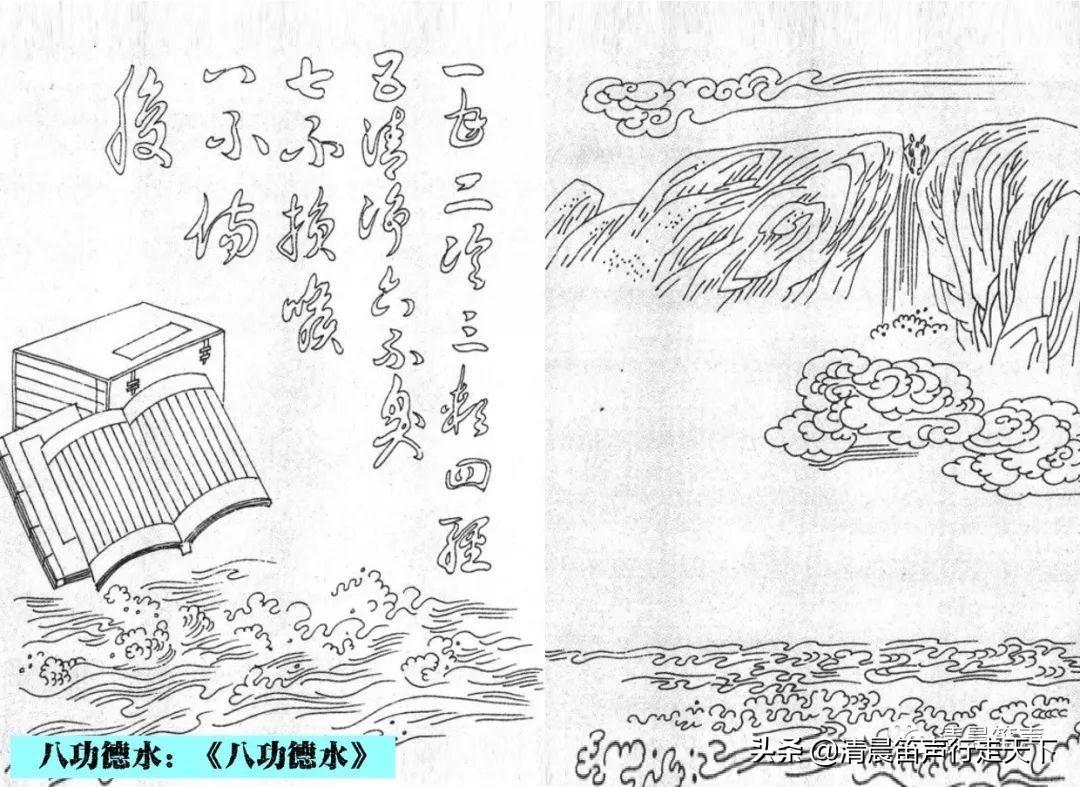 一甘二冷三軟四輕
五清淨六不臭
七不損喉
八不傷
腹
八功德水：《八功德水》
清晨笛声
头条 @清晨笛声行走天下